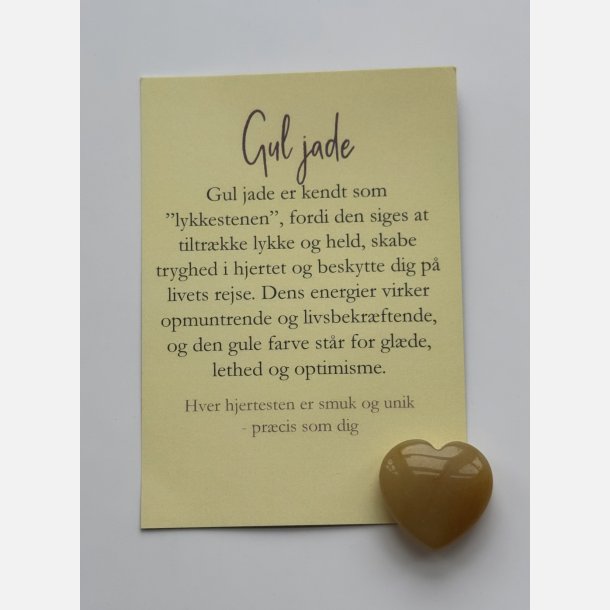 Gul jade
Gul jade er kendt som
”lykkestenen”, fordi den siges at
tiltrække lykke og held, skabe
tryghed i hjertet og beskytte dig på
livets rejse. Dens energier virker
opmuntrende og livsbekræftende,
og den gule farve står for glæde,
lethed og optimisme.
Hver hjertesten er smuk og unik
- præcis som dig